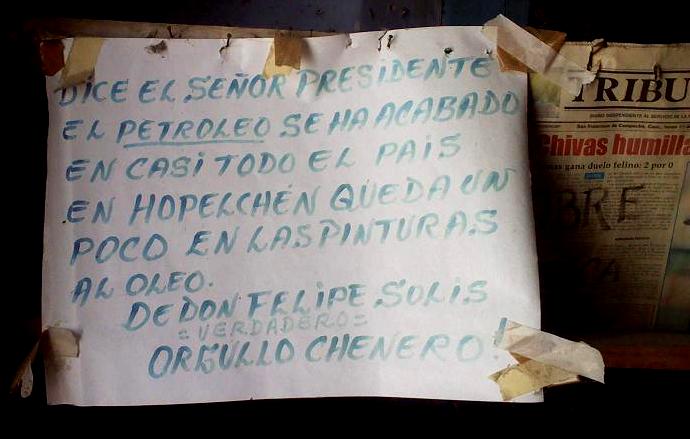 DICE EL SEÑOR PRESIDENTE
EL PETROLEO SE HA ACABADO
EN CASI TODO EL PAIS
EN HOPELCHÉN QUEDA UN
POCO EN LAS PINTURAS
AL OLEO.
DE DON FELIPE SOLIS
= VERDADERO =
ORGULLO CHENERO!
TRIBU
DIARIO INDEPENDIENTE AL SERVICIO DE LA
San Francisco de Campeche, Cam.,
Chivas humilla
gana duelo felino: 2 por 0
BRE